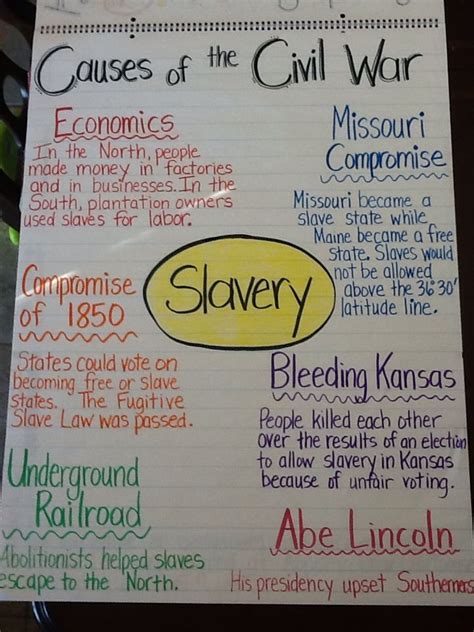 Causes of the Civil War
Economics
In the North, people
made money in factories
and in businesses. In the
South, plantation owners
used slaves for labor.
Missouri
Compromise
Missouri became a
slave state while
Maine became a free
state. Slaves would
not be allowed
above the 36°30'
latitude line.
Slavery
Compromise
of 1850
States could vote on
becoming free or slave
states. The Fugitive
Slave Law was passed.
Bleeding Kansas
People killed each other
over the results of an election
to allow slavery in Kansas
because of unfair voting.
Underground
Railroad
Abolitionists helped slaves
escape to the North.
Abe Lincoln
His presidency upset Southerners